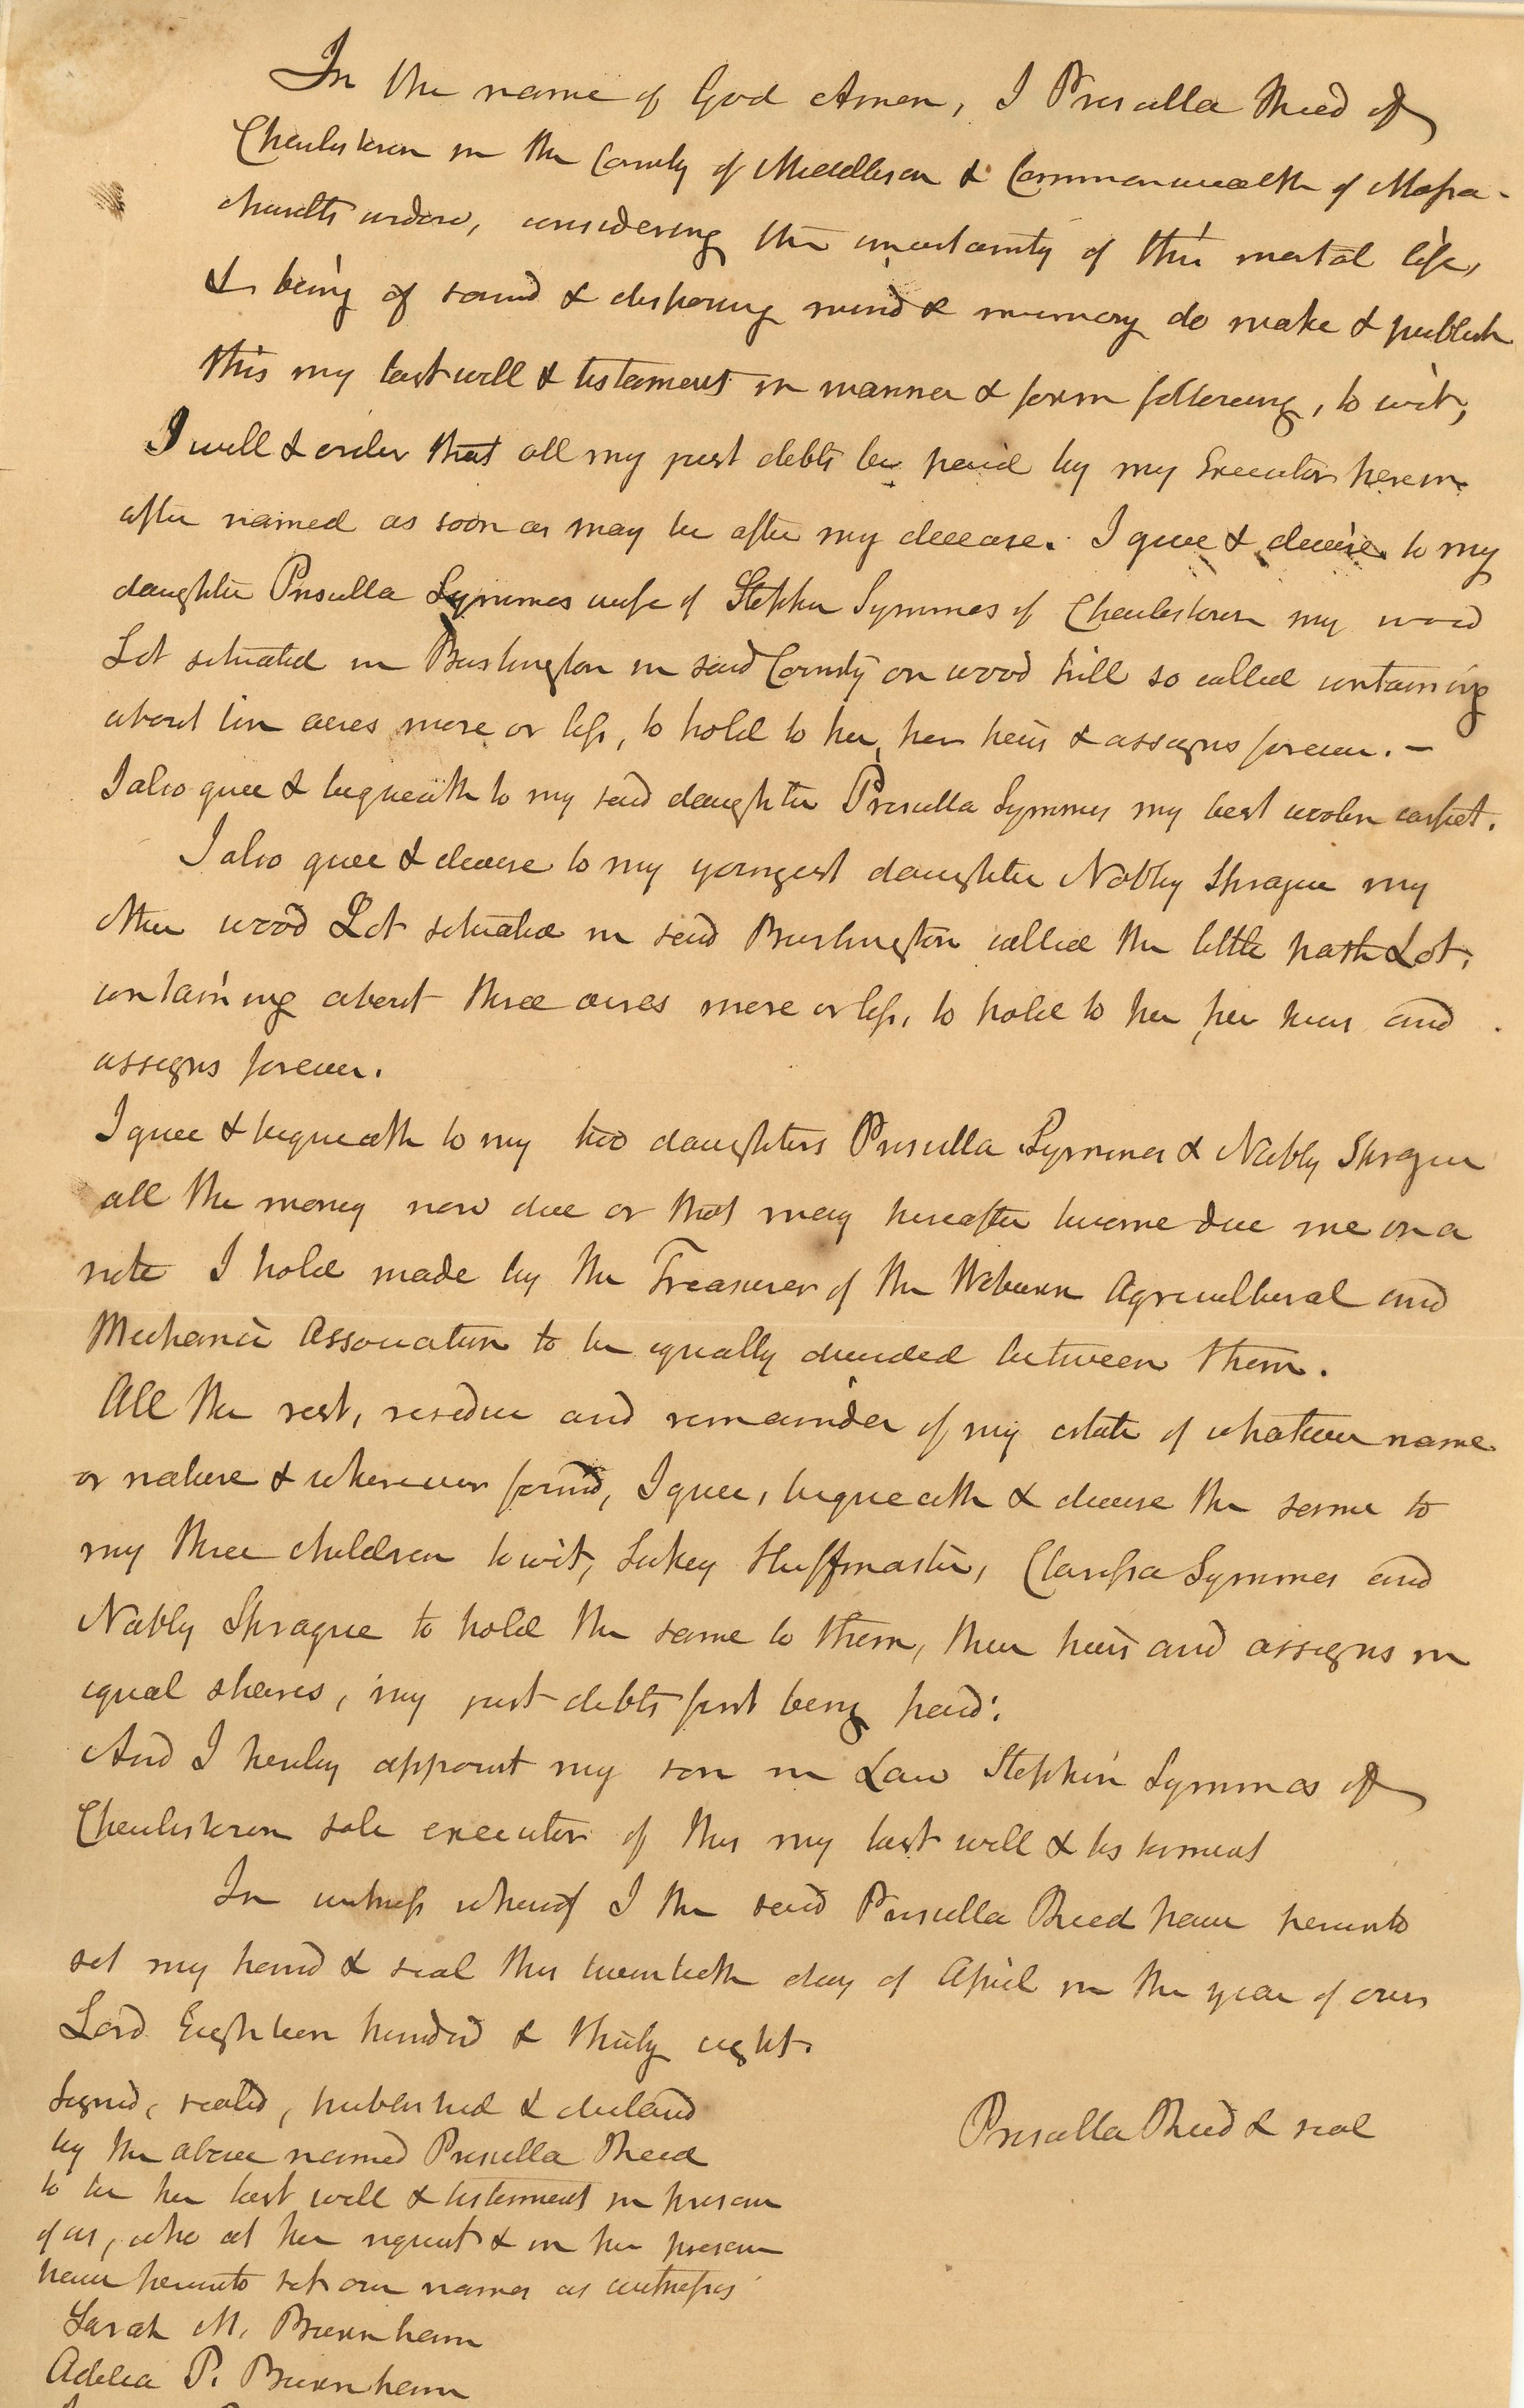 In the name of God Amen, I Priscilla Reed of
Charlestown in the County of Middlesex & Commonwealth of Massa-
chusetts widow, considering the uncertainty of this mortal life,
& being of sound & disposing mind & memory do make & publish
this my last will & testament in manner & form following, to wit,
I will & order that all my just debts be paid by my Executor herein
after named as soon as may be after my decease. I give & devise to my
daughter Priscilla Symmes wife of Stephen Symmes of Charlestown my wood
Lot situated in Burlington in said County on wood hill so called containing
about ten acres more or less, to hold to her, her heirs & assigns forever. –
I also give & bequeath to my said daughter Priscilla Symmes my best woolen carpet.
I also give & devise to my youngest daughter Nabby Sprague my
other wood Lot situated in said Burlington called the little path Lot,
containing about three acres more or less, to hold to her, her heirs and
assigns forever.
I give & bequeath to my two daughters Priscilla Symmes & Nabby Sprague
all the money now due or that may hereafter become due me on a
note I hold made by the Treasurer of the Woburn Agricultural and
Mechanic Association to be equally divided between them.
All the rest, residue and remainder of my estate of whatever name
or nature & wherever found, I give, bequeath & devise the same to
my three children to wit, Sukey Huffmaster, Clarissa Symmes and
Nabby Sprague to hold the same to them, their heirs and assigns in
equal shares, my just debts first being paid.
And I hereby appoint my son in Law Stephen Symmes of
Charlestown sole executor of this my last will & testament
In witness whereof I the said Priscilla Reed have hereunto
set my hand & seal this twentieth day of April in the year of our
Lord Eighteen hundred & thirty eight.
Signed, sealed, published & declared
by the above named Priscilla Reed
to be her last will & testament in presence
of us, who at her request & in her presence
have hereunto set our names as witnesses
Priscilla Reed & seal
Sarah M. Burnham
Adelia P. Burnham